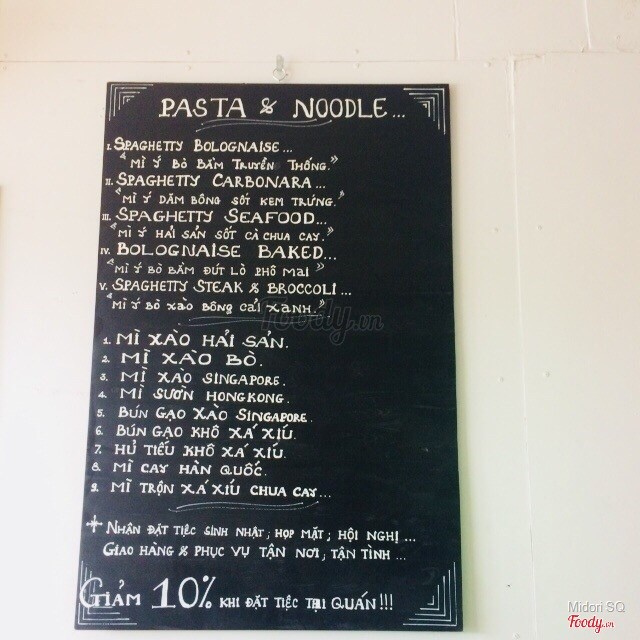 PASTA & NOODLE...
I. SPAGHETTY BOLOGNAISE...
"MÌ Ý BÒ BẰM TRUYỀN THỐNG."
II. SPAGHETTY CARBONARA...
"MÌ Ý DĂM BÔNG SỐT KEM TRỨNG."
III. SPAGHETTY SEAFOOD...
"MÌ Ý HẢI SẢN SỐT CÀ CHUA CAY."
IV. BOLOGNAISE BAKED...
"MÌ Ý BÒ BẰM ĐÚT LÒ PHÔ MAI"
V. SPAGHETTY STEAK & BROCCOLI...
"MÌ Ý BÒ XÀO BÔNG CẢI XANH."
Foody.vn
1. MÌ XÀO HẢI SẢN.
2. MÌ XÀO BÒ.
3. MÌ XÀO SINGAPORE.
4. MÌ SƯỜN HONGKONG.
5. BÚN GẠO XÀO SINGAPORE.
6. BÚN GẠO KHÔ XÁ XÍU.
7. HỦ TIẾU KHÔ XÁ XÍU.
8. MÌ CAY HÀN QUỐC.
9. MÌ TRỘN XÁ XÍU CHUA CAY...
+ NHẬN ĐẶT TIỆC SINH NHẬT, HỌP MẶT, HỘI NGHỊ...
GIAO HÀNG & PHỤC VỤ TẬN NƠI, TẬN TÌNH...
GIẢM 10% KHI ĐẶT TIỆC TẠI QUÁN!!!
Midori SQ
Foody.vn